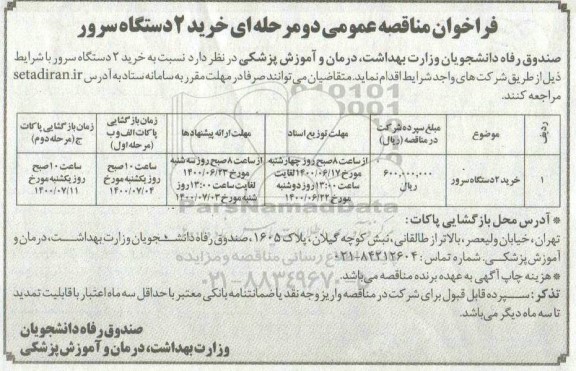 فراخوان مناقصه عمومی دو مرحله ای خرید ۲ دستگاه سرور
صندوق رفاه دانشجویان وزارت بهداشت، درمان و آموزش پزشکی در نظر دارد نسبت به خرید ۲ دستگاه سرور با شرایط
ذیل از طریق شرکت های واجد شرایط اقدام نماید. متقاضیان می توانند صرفا در مهلت مقرر به سامانه ستاد به آدرس setadiran.ir
مراجعه کنند.
ردیف
موضوع
مبلغ سپرده شرکت در مناقصه (ریال)
مهلت توزیع اسناد
مهلت ارائه پیشنهادها
زمان بازگشایی پاکات الف و ب (مرحله اول)
زمان بازگشایی پاکات ج (مرحله دوم)
۱
خرید ۲ دستگاه سرور
۶۰۰,۰۰۰,۰۰۰ ریال
از ساعت ۸ صبح روز چهارشنبه
مورخ ۱۴۰۰/۰۶/۱۷ لغایت
ساعت ۱۳:۰۰ روز دوشنبه
مورخ ۱۴۰۰/۰۶/۲۲
از ساعت ۸ صبح روز سه شنبه
مورخ ۱۴۰۰/۰۶/۲۳
لغایت ساعت ۱۳:۰۰ روز
شنبه مورخ ۱۴۰۰/۰۷/۰۳
ساعت ۱۰ صبح
روز یکشنبه مورخ
۱۴۰۰/۰۷/۰۴
ساعت ۱۰ صبح
روز یکشنبه مورخ
۱۴۰۰/۰۷/۱۱
* آدرس محل بازگشایی پاکات:
تهران، خیابان ولیعصر، بالاتر از طالقانی، نبش کوچه گیلان، پلاک ۱۶۰۵، صندوق رفاه دانشجویان وزارت بهداشت، درمان و
آموزش پزشکی. شماره تماس: ۸۴۲۱۲۶۰۴-۰۲۱
* هزینه چاپ آگهی به عهده برنده مناقصه می باشد.
تذکر: سپرده قابل قبول برای شرکت در مناقصه واریز وجه نقد یا ضمانتنامه بانکی معتبر با حداقل سه ماه اعتبار با قابلیت تمدید
تا سه ماه دیگر می باشد.
صندوق رفاه دانشجویان
وزارت بهداشت، درمان و آموزش پزشکی
ParsNamadData
۰۲۱-۸۸۳۴۹۶۷۰